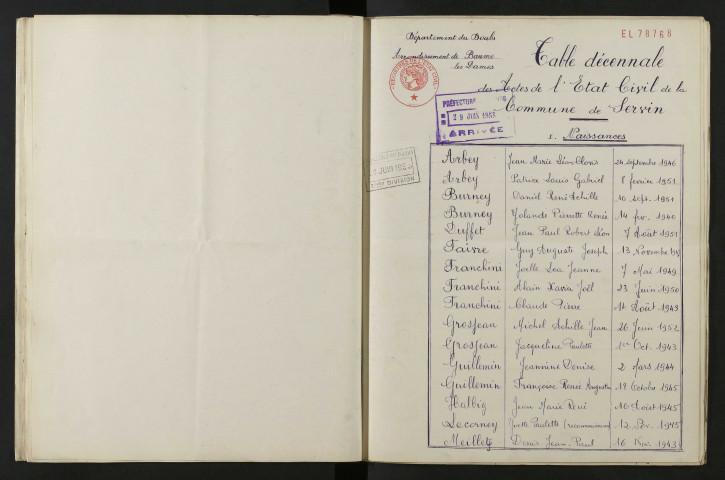 Département du Doubs
Arrondissement de Baume
les Dames
EL 78768
Table décennale
des Actes de l'Etat Civil de la
Commune de Servin
PRÉFECTURE
29 JUIN 1953
ARRIVÉE
JUIN
DIVISION
1. Naissances
Arbey Jean Marie Léon Clovis 24 septembre 1946
Arbey Patrice Louis Gabriel 8 fevrier 1951
Burney Daniel René Achille 10 sept. 1951
Burney Yolande Pierrette Renée 14 fev. 1940
Jean Paul Robert Léon 7 Août 1951
Faivre Guy Auguste Joseph 13 Novembre
Franchini Joelle Lea Jeanne 7 Mai 1949
Franchini Alain Xavier Joël 23 Juin 1950
Franchini Claude Pierre Août 1943
Grosjean Michel Achille Jean 26 Juin 1952
Grosjean Jacqueline Paulette 1er Oct. 1943
Guillemin Jeannine Denise 2 Mars 1944
Guillemin Françoise Renée Augustin Octobre 1945
Halbig Jean Marie René 16 Août 1945
Lecorney Yvette Paulette (reconnaissance) 12 1945
Denis Jean-Paul 16 1943